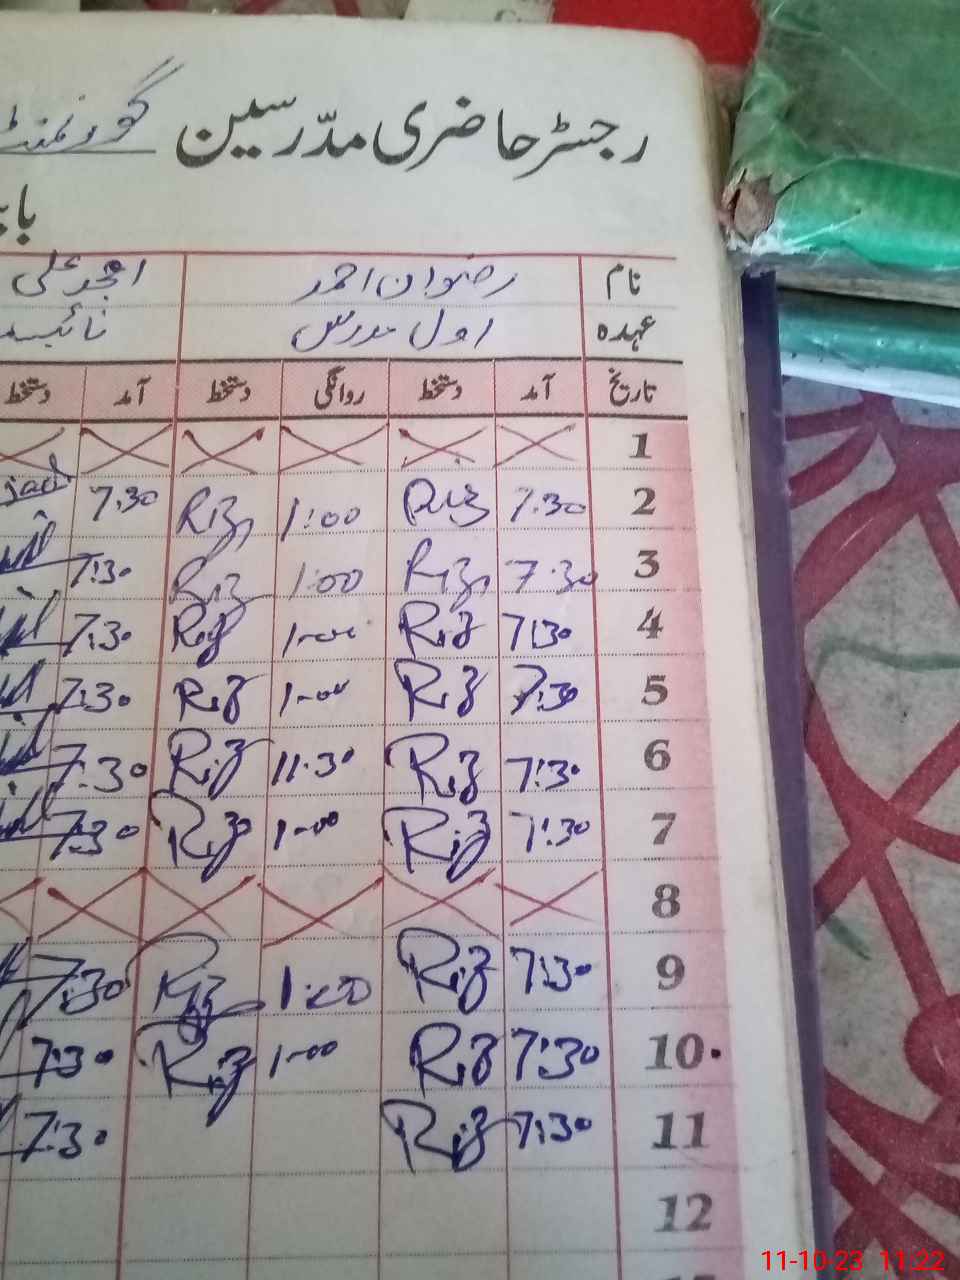 رجسٹر حاضری مدرسین گورنمنٹ
نام رضوان احمد امجد علی
عہدہ اول مدرس
تاریخ آمد دستخط روانگی دستخط آمد دستخط
1
2 7.30 Riz 1:00 Riz 7.30
3 7.30 Riz 1:00 Riz 7:30
4 7:30 Riz 1-00 Riz 7:30
5 7:30 Riz 1-00 Riz 7:30
6 7:30 Riz 11:30 Riz 7:30
7 7:30 Riz 1-00 Riz 7:30
8
9 7:30 Riz 1:00 Riz 7:30
10 7:30 Riz 1-00 Riz 7:30
11 7:30 Riz 7:30
12
11-10-23 11:22